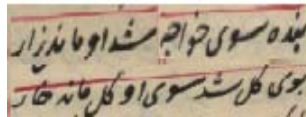 بنده سوی خواجه شد او ماند زار
بوی گل شد سوی او گل ماند خار